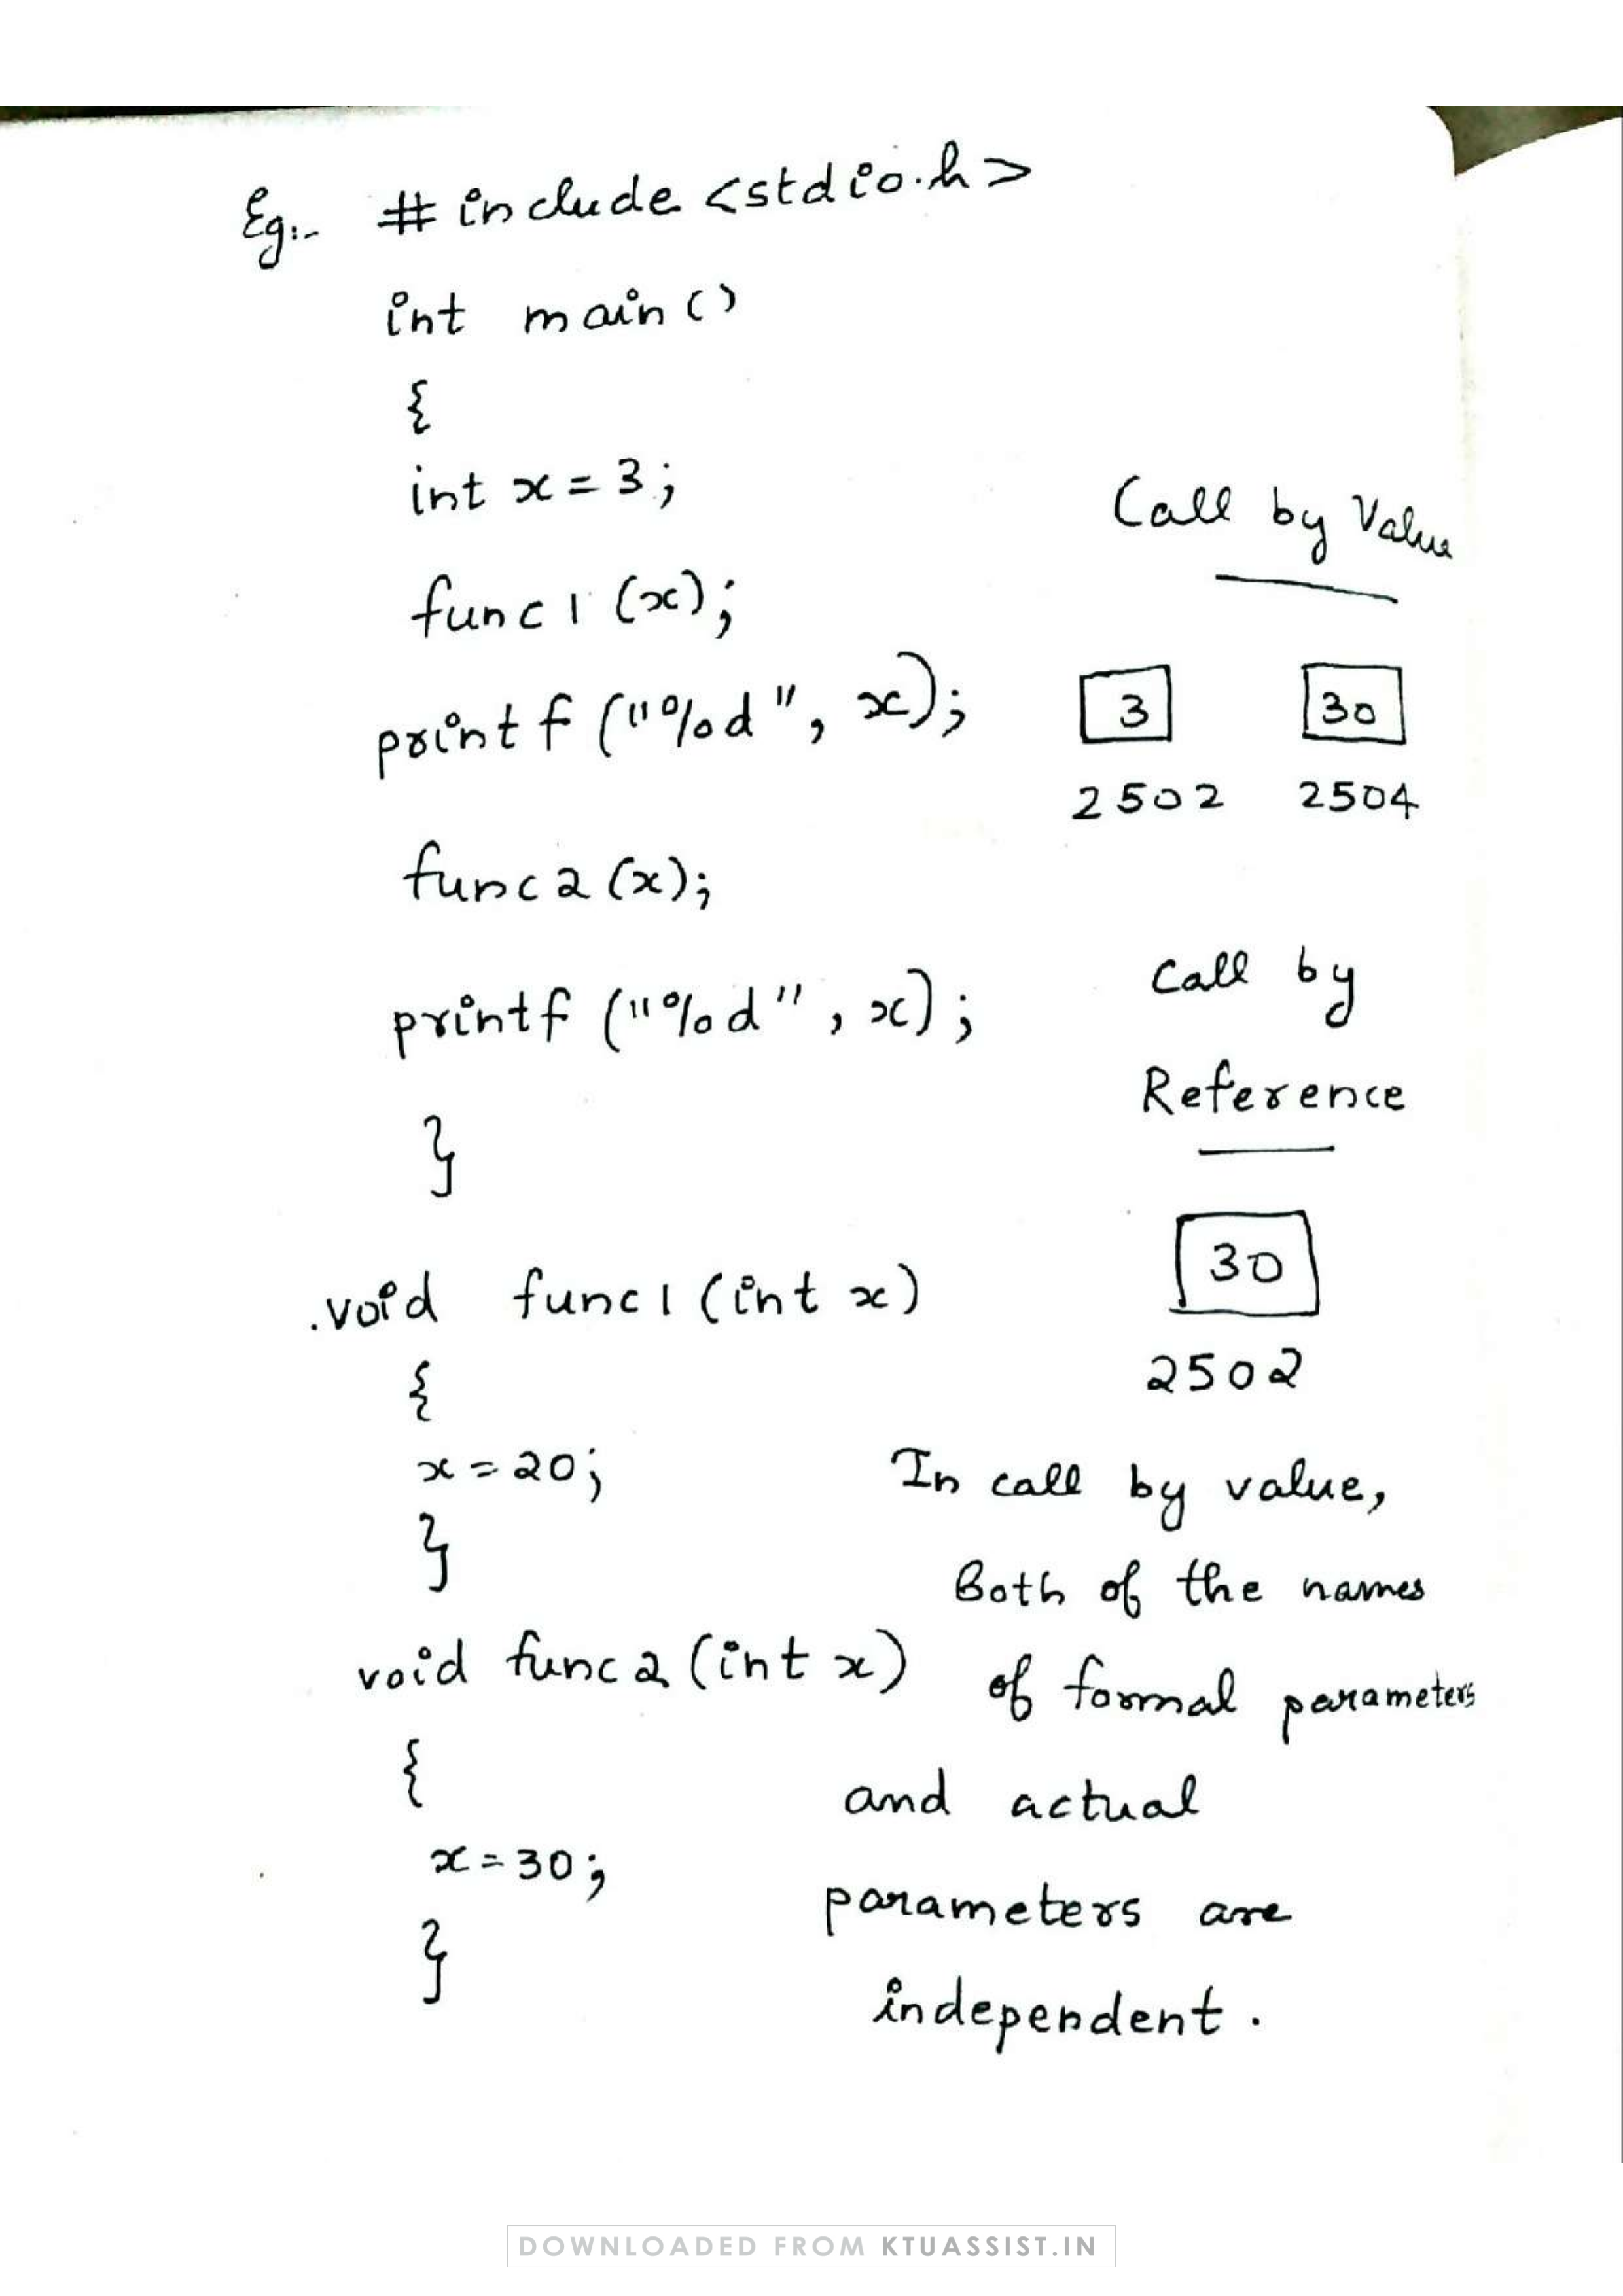 Eg:- #include <stdio.h>
int main()
{
int x = 3;
func1(x);
printf("%d", x);
func2(x);
printf("%d", x);
}
.void func1(int x)
{
x = 20;
}
void func2(int x)
{
x = 30;
}
Call by Value
3 30
2502 2504
Call by
Reference
30
2502
In call by value,
Both of the names
of formal parameters
and actual
parameters are
independent.
DOWNLOADED FROM KTUASSIST.IN